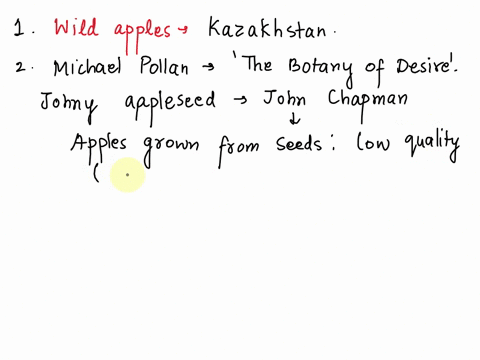 1. Wild apples → Kazakhstan.
2. Michael Pollan → 'The Botany of Desire'.
Johny appleseed → John Chapman
↓
Apples grown from seeds: low quality
(